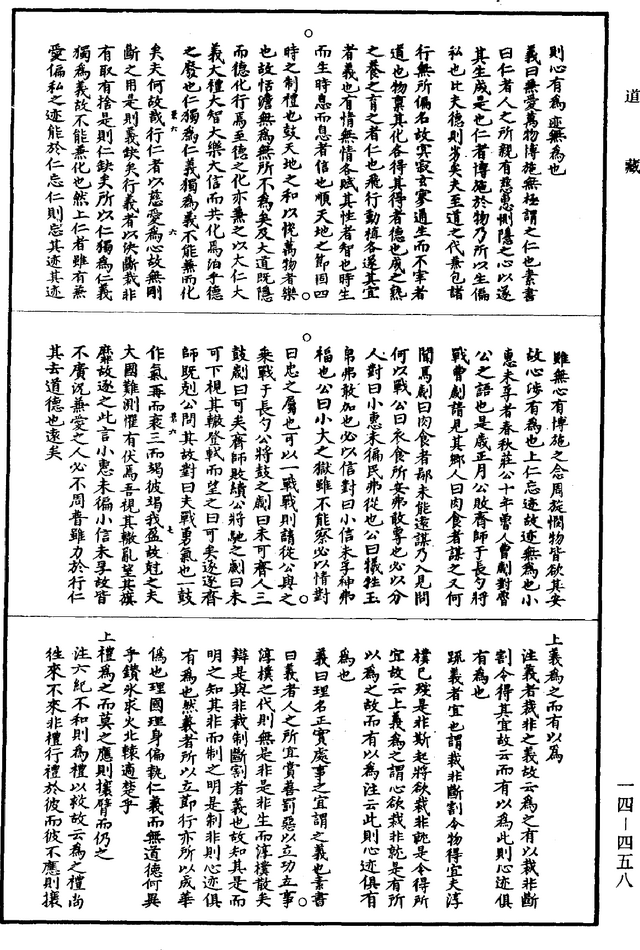 道藏
則心有為迹無為也
義曰無愛萬物博施無極謂之仁也素書
曰仁者人之所親有慈惠惻隱之心以遂
其生成是也仁者博施於物乃所以生偏
私也比夫德則劣矣夫至道之代兼包諸
行無所偏名故寞寂玄寥通生而不宰者
道也物禀其化各得其得者德也成之熟
之養之育之者仁也飛行動植各遂其宜
者義也有情無情各賦其性者智也時生
而生時息而息者信也順天地之節因四
時之制禮也鼓天地之和以悅萬物者樂
也故恬澹無為無所不為矣及大道既隱
而德化行焉至德之化亦兼之以大仁大
義大禮大智大樂大信而共化焉洎乎德
之廢也仁獨為仁義獨為義不能兼而化
矣夫何故哉行仁者以慈愛為心故無剛
斷之用是則義缺矣行義者以決斷裁非
有取有捨是則仁缺矣所以仁獨為仁義
獨為義故不能兼化也然上仁者雖有兼
愛偏私之迹能於仁忘仁則忘其迹其迹
雖無心有博施之念周旋惘物皆欲其安
故心涉有為也上仁忘迹故迹無為也小
惠未孚者春秋莊公十年魯人曹劌對魯
公之語也是歲正月公敗齊師于長勺將
戰曹劌請見其鄉人曰肉食者謀之又何
間焉劌曰肉食者鄙未能遠謀乃入見問
何以戰公曰衣食所安弗敢專也必以分
人對曰小惠未徧民弗從也公曰犧牲玉
帛弗敢加也必以信對曰小信未孚神弗
福也公曰小大之獄雖不能察必以情對
曰忠之屬也可以一戰戰則請從公與之
乘戰于長勺公將鼓之劌曰未可齊人三
鼓劌曰可矣齊師敗績公將馳之劌曰未
可下視其轍登軾而望之曰可矣遂逐齊
師既剋公問其故對曰夫戰勇氣也一鼓
作氣再而衰三而竭彼竭我盈故尅之夫
大國難測懼有伏焉吾視其轍亂望其旗
靡故逐之此言小惠未徧小信未孚故皆
不廣況兼愛之人必不周普雖力於行仁
其去道德也遠矣
上義為之而有以為
注義者裁非之義故云為之有以裁非斷
割令得其宜故云而有以為此則心迹俱
有為也
疏義者宜也謂裁非斷割令物得宜夫淳
樸已殘是非斯起將欲裁非就是令得所
宜故云上義為之謂心欲裁非就是有所
以為之故而有以為注云此則心迹俱有
為也
義曰理名正實處事之宜謂之義也素書
曰義者人之所宜賞善罰惡以立功立事
淳樸之代則無是非是非生而淳樸散矣
辯是與非裁制斷割者義也故知其是而
明之知其非而制之明是制非則心迹俱
有為也然義者所以立節行亦所以成華
偽也理國理身偏執仁義而無道德何異
乎鑽氷求火北轅適楚乎
上禮為之而莫之應則攘臂而仍之
注六紀不和則為禮以救故云為之禮尚
往來不來非禮行禮於彼而彼不應則攘
一四－四五八